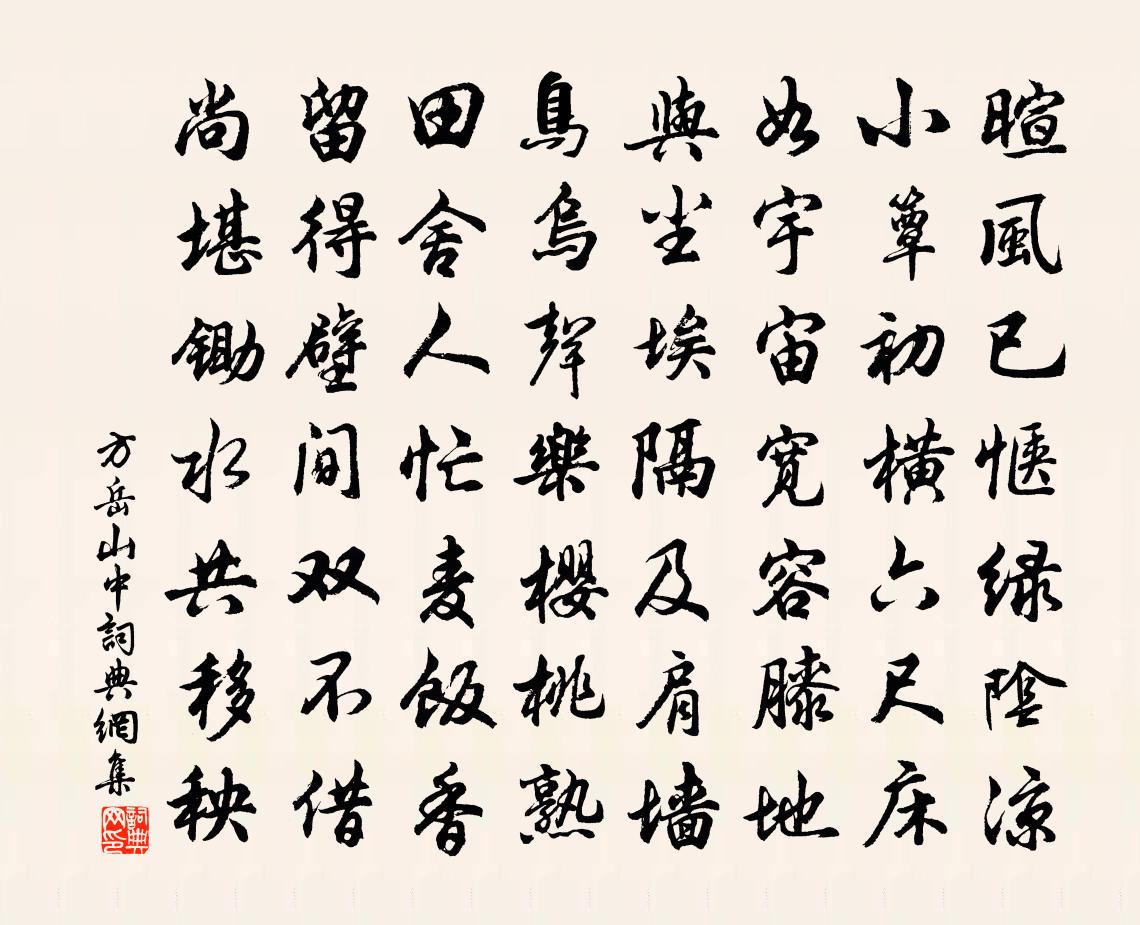 暄風已愜緑陰涼
小簟初橫六尺床
如宇宙寬容膝地
與尘埃隔及肩墻
鳥烏聲樂櫻桃熟
田舍人忙麦飯香
留得壁间双不借
尚堪鋤水共移秧
方岳山中詞典網集
詞典网印